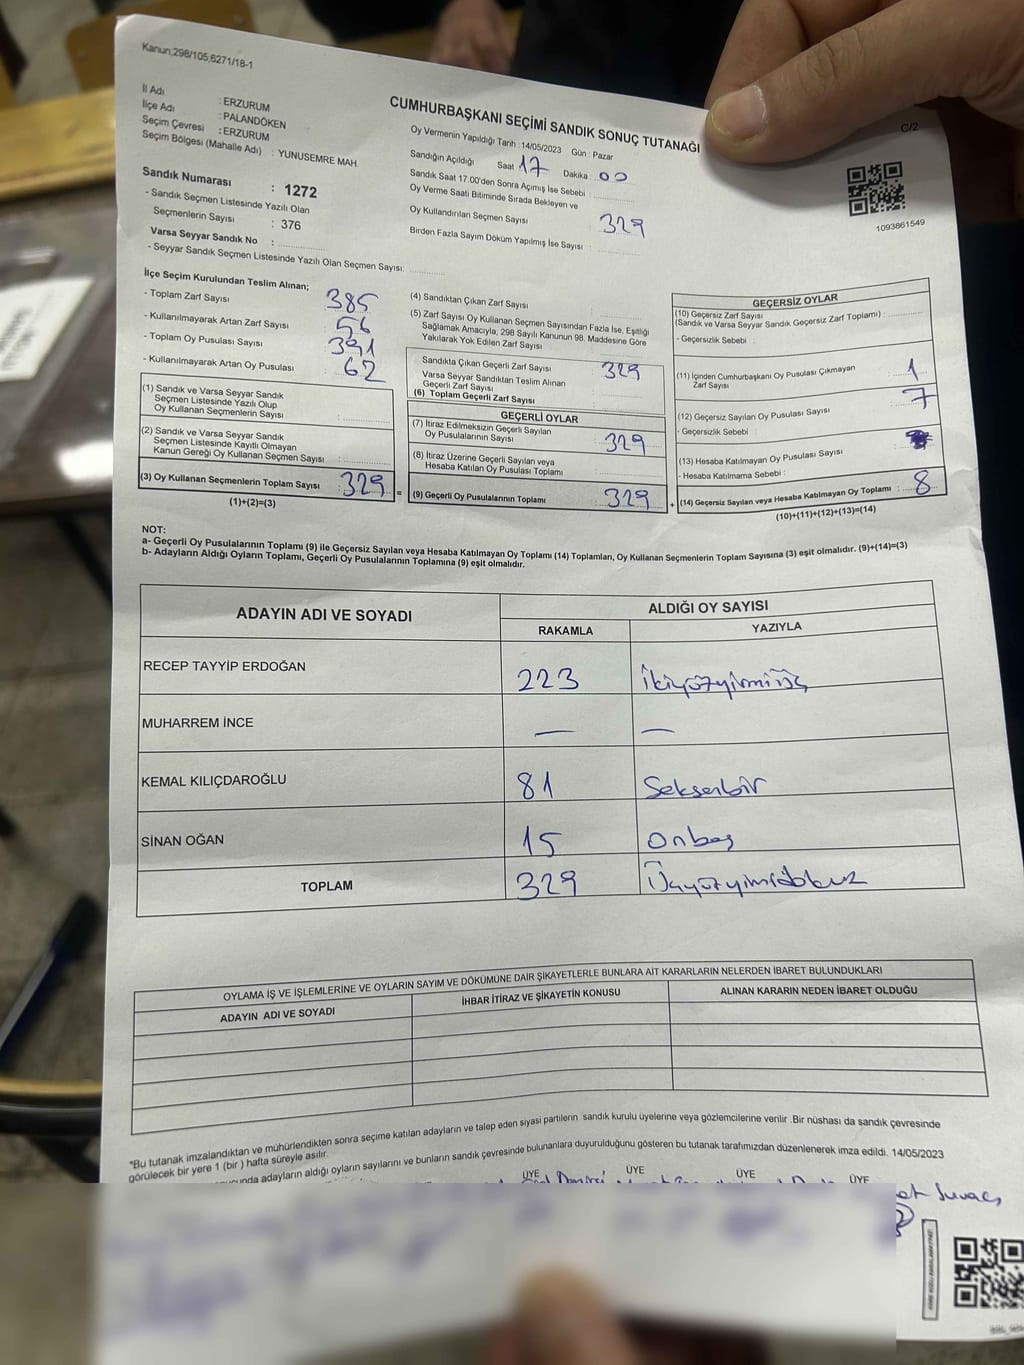 Kanun;298/105,6271/18-1
C/2
İl Adı : ERZURUM
İlçe Adı : PALANDÖKEN
Seçim Çevresi : ERZURUM
Seçim Bölgesi (Mahalle Adı) : YUNUSEMRE MAH.
CUMHURBAŞKANI SEÇİMİ SANDIK SONUÇ TUTANAĞI
Oy Vermenin Yapıldığı Tarih :14/05/2023 Gün : Pazar
Sandığın Açıldığı Saat 17 Dakika 00
Sandık Saat 17.00'den Sonra Açımış İse Sebebi :
Oy Verme Saati Bitiminde Sırada Bekleyen ve
Oy Kullandırılan Seçmen Sayısı : 329
Birden Fazla Sayım Döküm Yapılmış İse Sayısı :
1093861549
Sandık Numarası : 1272
- Sandık Seçmen Listesinde Yazılı Olan
Seçmenlerin Sayısı : 376
Varsa Seyyar Sandık No :
- Seyyar Sandık Seçmen Listesinde Yazılı Olan Seçmen Sayısı:
İlçe Seçim Kurulundan Teslim Alınan;
- Toplam Zarf Sayısı 385
- Kullanılmayarak Artan Zarf Sayısı 56
- Toplam Oy Pusulası Sayısı 391
- Kullanılmayarak Artan Oy Pusulası 62
(1) Sandık ve Varsa Seyyar Sandık
Seçmen Listesinde Yazılı Olup
Oy Kullanan Seçmenlerin Sayısı :
(2) Sandık ve Varsa Seyyar Sandık
Seçmen Listesinde Kayıtlı Olmayan
Kanun Gereği Oy Kullanan Seçmen Sayısı :
(3) Oy Kullanan Seçmenlerin Toplam Sayısı : 329 =
(1)+(2)=(3)
(4) Sandıktan Çıkan Zarf Sayısı :
(5) Zarf Sayısı Oy Kullanan Seçmen Sayısından Fazla İse, Eşitliği
Sağlamak Amacıyla, 298 Sayılı Kanunun 98. Maddesine Göre
Yakılarak Yok Edilen Zarf Sayısı
Sandıkta Çıkan Geçerli Zarf Sayısı 329
Varsa Seyyar Sandıktan Teslim Alınan
Geçerli Zarf Sayısı
(6) Toplam Geçerli Zarf Sayısı
GEÇERLİ OYLAR
(7) İtiraz Edilmeksizin Geçerli Sayılan
Oy Pusulalarının Sayısı : 329
(8) İtiraz Üzerine Geçerli Sayılan veya
Hesaba Katılan Oy Pusulası Toplamı :
(9) Geçerli Oy Pusulalarının Toplamı : 329 +
GEÇERSİZ OYLAR
(10) Geçersiz Zarf Sayısı
(Sandık ve Varsa Seyyar Sandık Geçersiz Zarf Toplamı) :
- Geçersizlik Sebebi :
(11) İçinden Cumhurbaşkanı Oy Pusulası Çıkmayan
Zarf Sayısı 1
(12) Geçersiz Sayılan Oy Pusulası Sayısı 7
- Geçersizlik Sebebi :
(13) Hesaba Katılmayan Oy Pusulası Sayısı
- Hesaba Katılmama Sebebi :
(14) Geçersiz Sayılan veya Hesaba Katılmayan Oy Toplamı : 8
(10)+(11)+(12)+(13)=(14)
NOT:
a- Geçerli Oy Pusulalarının Toplamı (9) ile Geçersiz Sayılan veya Hesaba Katılmayan Oy Toplamı (14) Toplamları, Oy Kullanan Seçmenlerin Toplam Sayısına (3) eşit olmalıdır. (9)+(14)=(3)
b- Adayların Aldığı Oyların Toplamı, Geçerli Oy Pusulalarının Toplamına (9) eşit olmalıdır.
ADAYIN ADI VE SOYADI ALDIĞI OY SAYISI
RAKAMLA YAZIYLA
RECEP TAYYİP ERDOĞAN 223 ikiyüzyirmiüç
MUHARREM İNCE — —
KEMAL KILIÇDAROĞLU 81 Seksenbir
SİNAN OĞAN 15 Onbeş
TOPLAM 329
OYLAMA İŞ VE İŞLEMLERİNE VE OYLARIN SAYIM VE DÖKÜMÜNE DAİR ŞİKAYETLERLE BUNLARA AİT KARARLARIN NELERDEN İBARET BULUNDUKLARI
ADAYIN ADI VE SOYADI İHBAR İTİRAZ VE ŞİKAYETİN KONUSU ALINAN KARARIN NEDEN İBARET OLDUĞU
*Bu tutanak imzalandıktan ve mühürlendikten sonra seçime katılan adayların ve talep eden siyasi partilerin sandık kurulu üyelerine veya gözlemcilerine verilir .Bir nüshası da sandık çevresinde
görülecek bir yere 1 (bir ) hafta süreyle asılır.
adayların aldığı oyların sayılarını ve bunların sandık çevresinde bulunanlara duyurulduğunu gösteren bu tutanak tarafımızdan düzenlenerek imza edildi. 14/05/2023
ÜYE ÜYE ÜYE ÜYE